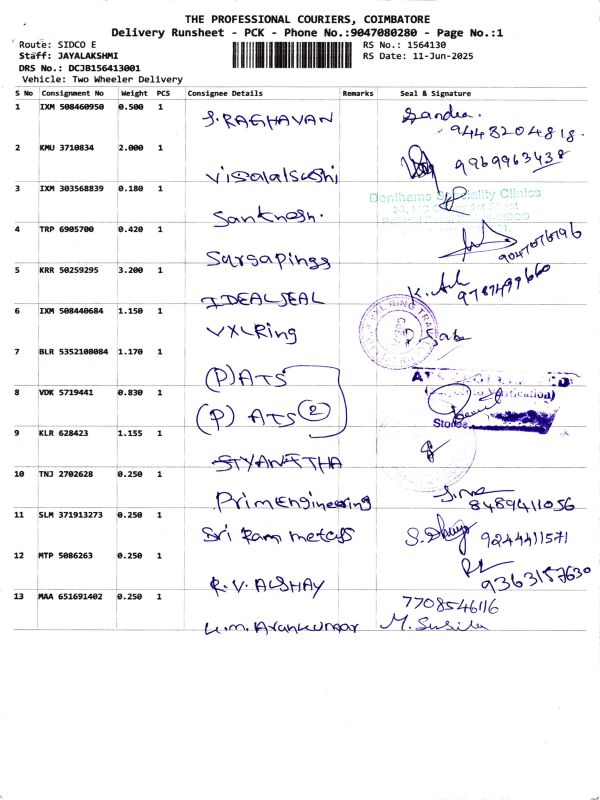 THE PROFESSIONAL COURIERS, COIMBATORE
Delivery Runsheet - PCK - Phone No.:9047080280 - Page No.:1
Route: SIDCO E RS No.: 1564130
Staff: JAYALAKSHMI RS Date: 11-Jun-2025
DRS No.: DCJB156413001
Vehicle: Two Wheeler Delivery
S No Consignment No Weight PCS Consignee Details Remarks Seal & Signature
1 IXM 508460950 0.500 1 S. RAGHAVAN
9448204818.
2 KMU 3710834 2.000 1 Visalalskshi 9969963438
3 IXM 303568839 0.180 1 Santhosh.
Speciality Clinics
4 TRP 6905700 0.420 1 Sargapings
9047076796
5 KRR 50259295 3.200 1 IDEALSEAL
9787499660
6 IXM 508440684 1.150 1 VXLRing
VXL RING
7 BLR 5352108084 1.170 1 (P) ATS
8 VDK 5719441 0.830 1 (P) ATS 2
Stores
9 KLR 628423 1.155 1
10 TNJ 2702628 0.250 1 PrimEngineering
8489411056
11 SLM 371913273 0.250 1 Sri Ram metals
9244411571
12 MTP 5086263 0.250 1 R.V. AKSHAY
9363157630
13 MAA 651691402 0.250 1 K.M. Arankumar
7708546116
M. Susila